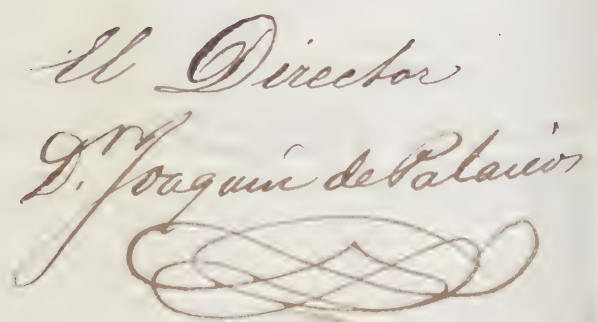 El Director
D.ⁿ Joaquin de Palacios